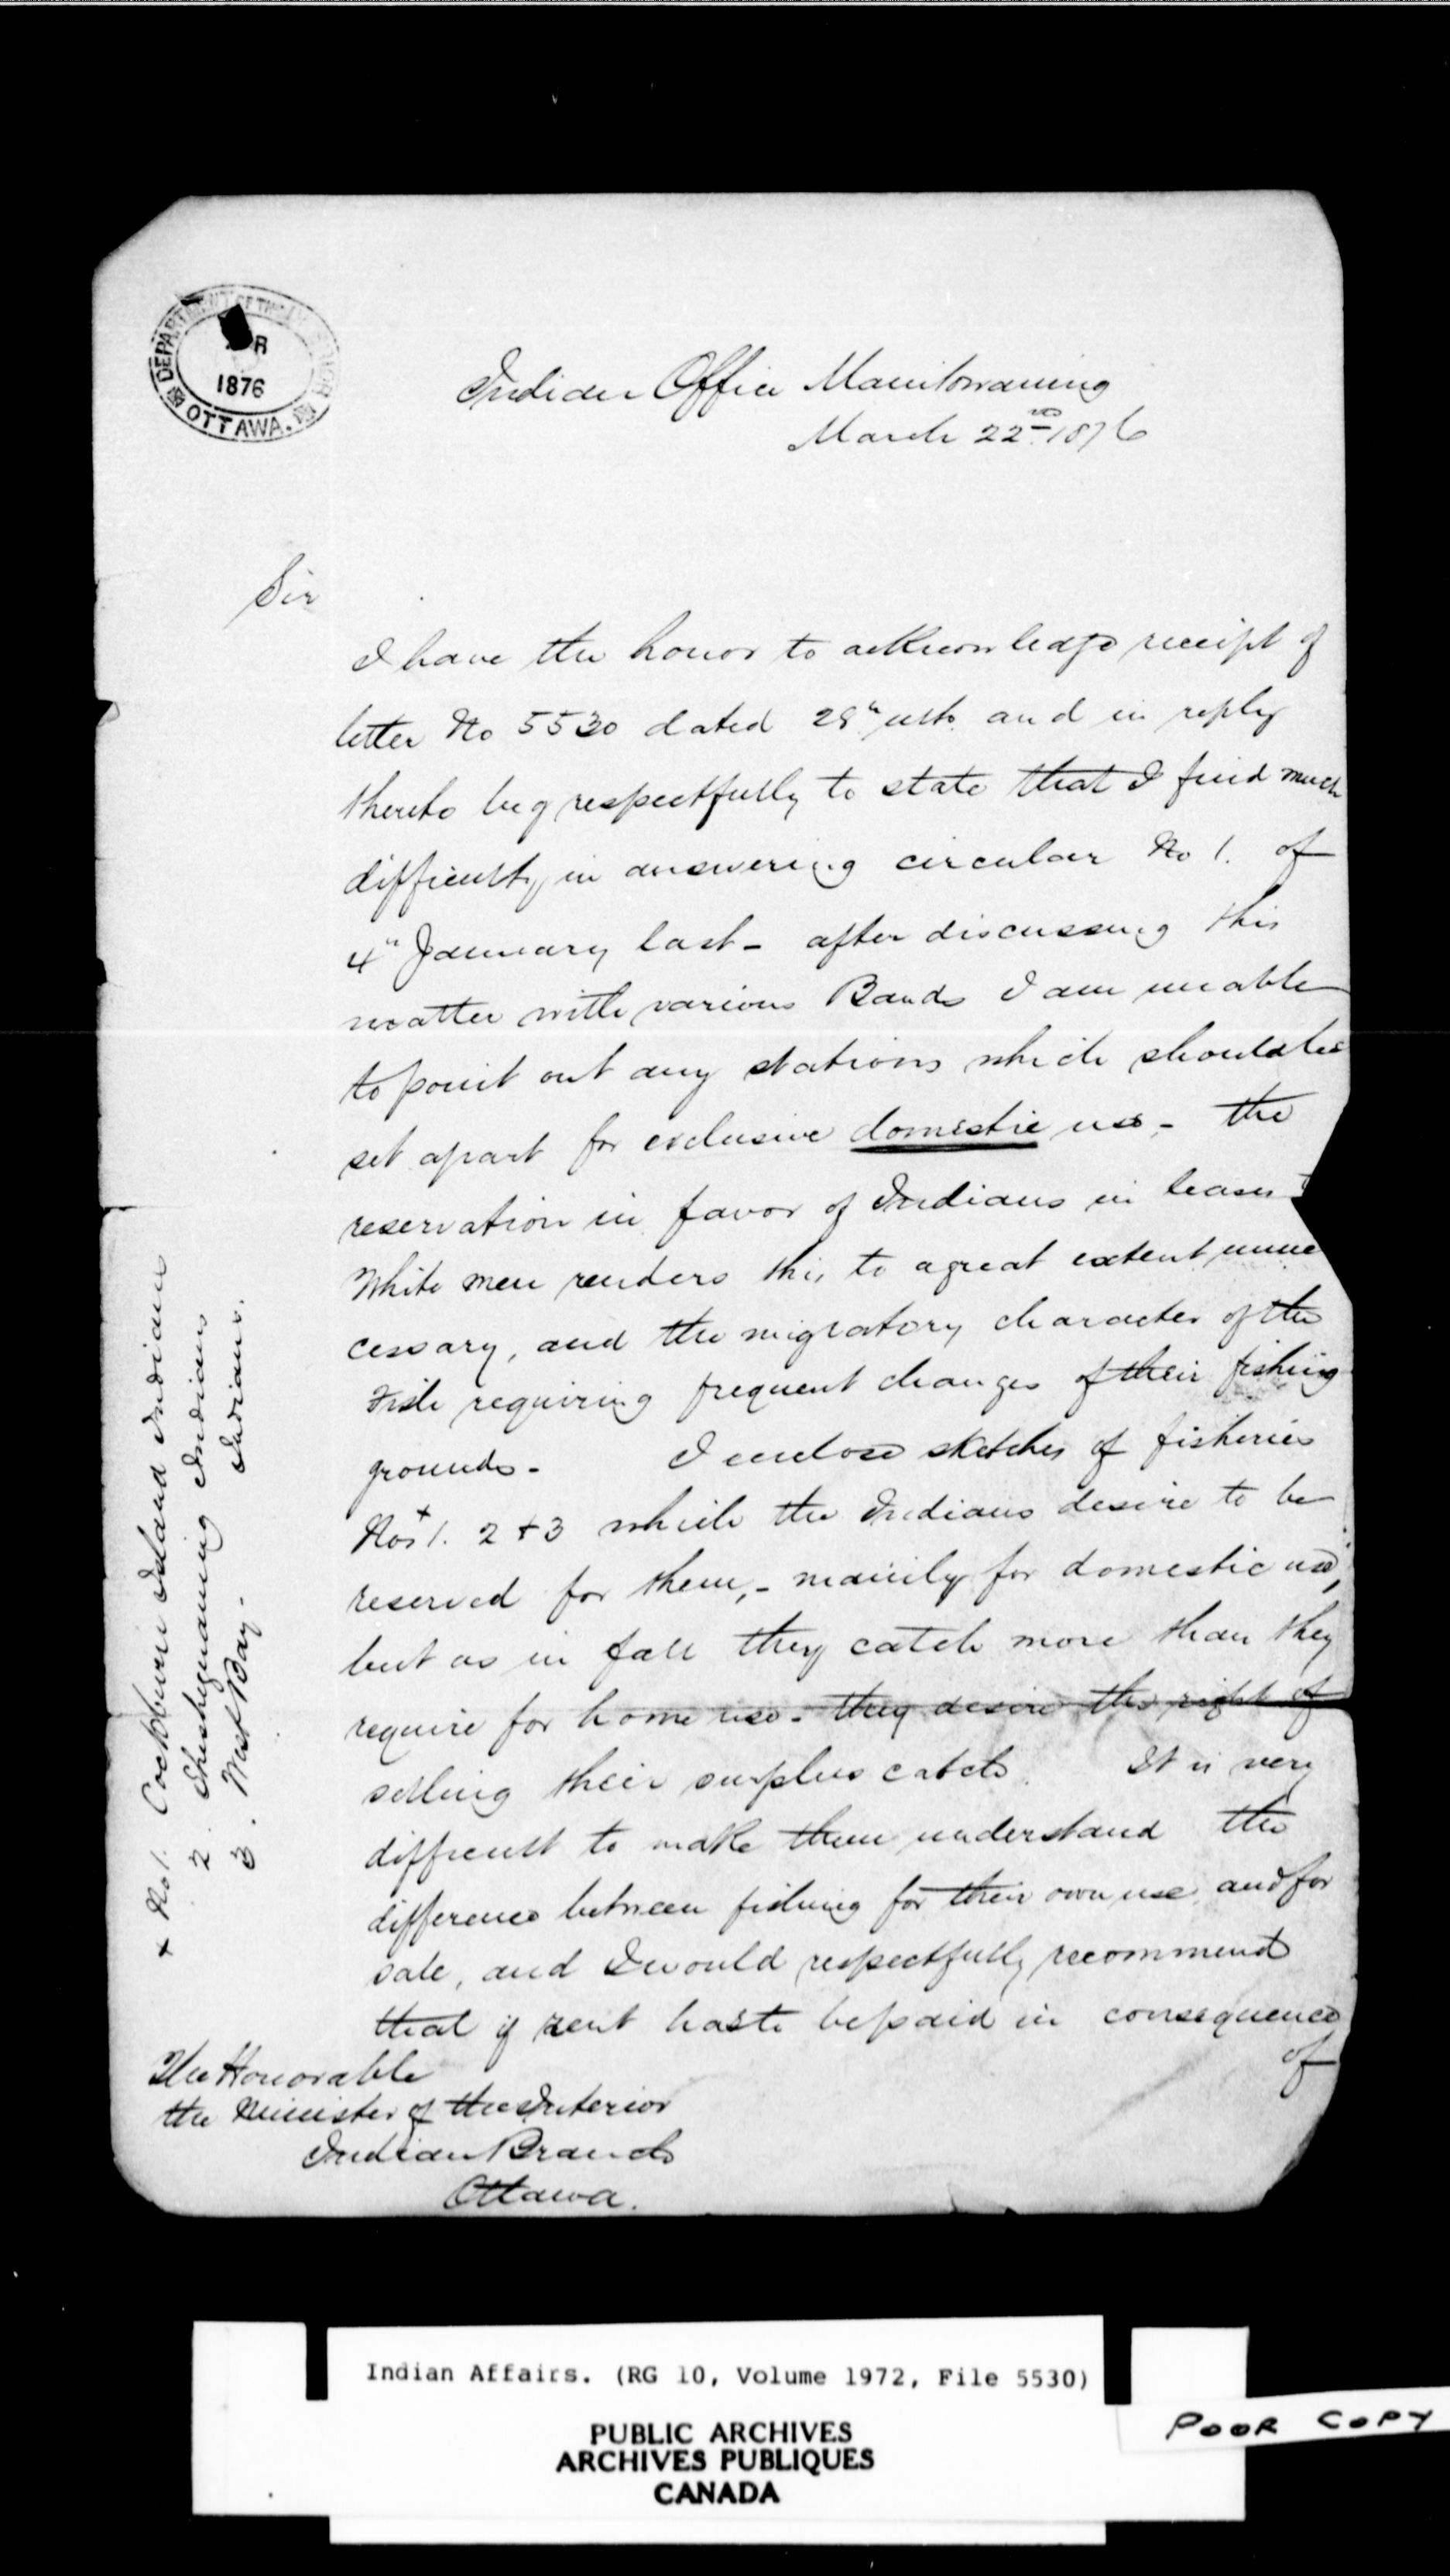 DEPARTMENT OF THE INTERIOR
1876
OTTAWA.
Indian Office Manitowaning
March 22nd 1876
Sir
I have the honor to acknowledge receipt of
letter No 5530 dated 28th ulto. and in reply
thereto beg respectfully to state that I find much
difficulty in answering circular No 1. of
4th January last - after discussing this
matter with various Bands I am unable
to point out any stations which should be
set apart for exclusive domestic use - the
reservation in favor of Indians in leases
White men renders this to a great extent unne
cessary, and the migratory character of the
Fish requiring frequent changes of their fishing
grounds - I enclose sketches of fisheries
Nos + 1. 2 + 3 which the Indians desire to be
reserved for them, - mainly for domestic use,
but as in fall they catch more than they
require for home use - they desire the right of
selling their surplus catch. It is very
difficult to make them understand the
difference between fishing for their own use and for
sale, and I would respectfully recommend
that if rent has to be paid in consequence
of
The Honorable
the Minister of the Interior
Indian Branch
Ottawa.
+ No 1. Cockburn Island Indians
2. Sheshegwaning Indians
3. West Bay - Indians.
Indian Affairs. (RG 10, Volume 1972, File 5530)
PUBLIC ARCHIVES
ARCHIVES PUBLIQUES
CANADA
POOR COPY